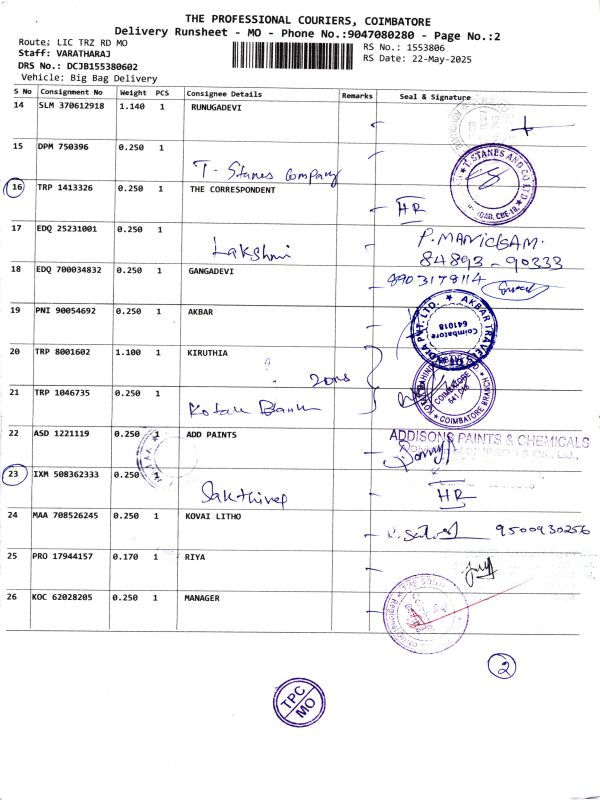 THE PROFESSIONAL COURIERS, COIMBATORE
Delivery Runsheet - MO - Phone No.:9047080280 - Page No.:2
Route: LIC TRZ RD MO
RS No.: 1553806
Staff: VARATHARAJ
RS Date: 22-May-2025
DRS No.: DCJB155380602
Vehicle: Big Bag Delivery
S No Consignment No Weight PCS Consignee Details Remarks Seal & Signature
14 SLM 370612918 1.140 1 RUNUGADEVI
15 DPM 750396 0.250 1
T. Stanes Company
T. STANES AND CO LTD
16 TRP 1413326 0.250 1 THE CORRESPONDENT
HR
17 EDQ 25231001 0.250 1
Lakshmi
P. MANICGAM.
84893-90333
18 EDQ 700034832 0.250 1 GANGADEVI
8903178114
19 PNI 90054692 0.250 1 AKBAR
AKBAR TRAVELS
INDIA PVT. LTD.
Coimbatore
641018
20 TRP 8001602 1.100 1 KIRUTHIA
2 ons
21 TRP 1046735 0.250 1
Kotak Bank
COIMBATORE
641 018
COIMBATORE BRANCH
22 ASD 1221119 0.250 1 ADD PAINTS
ADDISONS PAINTS & CHEMICALS
23 IXM 508362333 0.250
Sakthivel
HR
24 MAA 708526245 0.250 1 KOVAI LITHO
9500930256
25 PRO 17944157 0.170 1 RIYA
26 KOC 62028205 0.250 1 MANAGER
2
TPC
MO